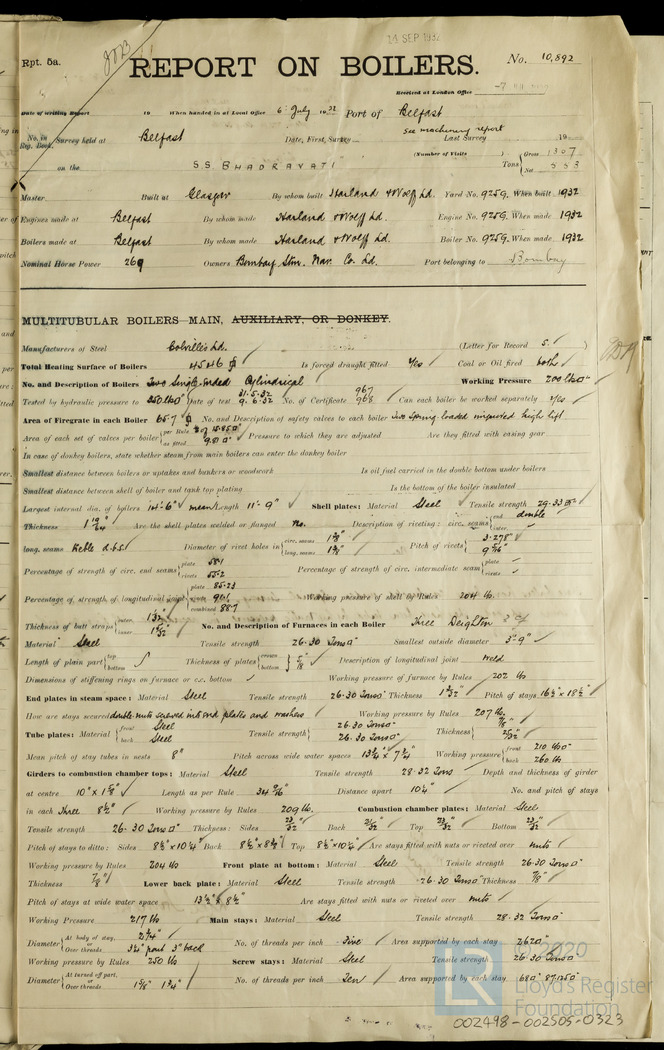 14 SEP 1932
Rpt. 5a.
REPORT ON BOILERS.
No. 10,892
Received at London Office
Date of writing Report 19 When handed in at Local Office 6 July 1932 Port of Belfast
No. in Reg. Book. Survey held at Belfast Date, First, Survey see machinery report Last Survey 19
(Number of Visits ) Tons Gross 1307 Net 553
on the S.S. BHADRAVATI
Master Built at Glasgow By whom built Harland & Wolff Ld. Yard No. 925G. When built 1932
Engines made at Belfast By whom made Harland & Wolff Ld. Engine No. 925G. When made 1932
Boilers made at Belfast By whom made Harland & Wolff Ld. Boiler No. 925G. When made 1932
Nominal Horse Power 269 Owners Bombay Stm. Nav. Co. Ld. Port belonging to Bombay
MULTITUBULAR BOILERS MAIN, AUXILIARY, OR DONKEY.
Manufacturers of Steel Colvilles Ld. (Letter for Record S.)
Total Heating Surface of Boilers 4546 Is forced draught fitted Yes Coal or Oil fired both
No. and Description of Boilers Two Single-ended Cylindrical Working Pressure 200 lbs
Tested by hydraulic pressure to 350 lbs Date of test 31.5.32 9.6.32 No. of Certificate 967 968 Can each boiler be worked separately Yes
Area of Firegrate in each Boiler 65.7 No. and Description of safety valves to each boiler Two Spring loaded improved high lift
Area of each set of valves per boiler per Rule as fitted Pressure to which they are adjusted Are they fitted with easing gear
In case of donkey boilers, state whether steam from main boilers can enter the donkey boiler
Smallest distance between boilers or uptakes and bunkers or woodwork Is oil fuel carried in the double bottom under boilers
Smallest distance between shell of boiler and tank top plating Is the bottom of the boiler insulated
Largest internal dia. of boilers 14'-6" mean Length 11'-9" Shell plates: Material Steel Tensile strength 29-33
Thickness Are the shell plates welded or flanged No. Description of riveting: circ. seams end double inter.
long. seams Treble d.b.s. Diameter of rivet holes in circ. seams long. seams Pitch of rivets 3.278" 9 7/16"
Percentage of strength of circ. end seams plate 58.1 rivets 55.2 Percentage of strength of circ. intermediate seam plate rivets
Percentage of strength of longitudinal joint plate 85.23 rivets 91.1 combined 88.7 Working pressure of shell by Rules 204 lb.
Thickness of butt straps outer inner No. and Description of Furnaces in each Boiler Three Deighton
Material Steel Tensile strength 26-30 Tons Smallest outside diameter 3'-9"
Length of plain part top bottom Thickness of plates crown bottom 5/8" Description of longitudinal joint Weld
Dimensions of stiffening rings on furnace or c.c. bottom Working pressure of furnace by Rules 202 lb
End plates in steam space: Material Steel Tensile strength 26-30 Tons Thickness Pitch of stays 16½" x 18½"
How are stays secured double nuts screwed into end plates and washers Working pressure by Rules 207 lb.
Tube plates: Material front Steel back Steel Tensile strength 26-30 Tons 26-30 Tons Thickness 7/8" 25/32"
Mean pitch of stay tubes in nests 8" Pitch across wide water spaces 13¾" x 7¾" Working pressure front 210 lbs back 260 lb
Girders to combustion chamber tops: Material Steel Tensile strength 28-32 Tons Depth and thickness of girder
at centre Length as per Rule Distance apart 10¼" No. and pitch of stays
in each Three 8½" Working pressure by Rules 209 lb. Combustion chamber plates: Material Steel
Tensile strength 26-30 Tons Thickness: Sides 23/32" Back Top 23/32" Bottom 23/32"
Pitch of stays to ditto: Sides 8½" x 10¼" Back Top 8½" x 10¼" Are stays fitted with nuts or riveted over nuts
Working pressure by Rules 204 lb Front plate at bottom: Material Steel Tensile strength 26-30 Tons
Thickness 7/8" Lower back plate: Material Steel Tensile strength 26-30 Tons Thickness 7/8"
Pitch of stays at wide water space 13½" x 8½" Are stays fitted with nuts or riveted over nuts
Working Pressure 217 lb Main stays: Material Steel Tensile strength 28-32 Tons
Diameter At body of stay, or Over threads 2¾" Front 3" back No. of threads per inch Five Area supported by each stay
Working pressure by Rules 250 lb Screw stays: Material Steel Tensile strength 26-30 Tons
Diameter At turned off part, or Over threads 1⅝" 1¾" No. of threads per inch Ten Area supported by each stay
© 2020
Lloyd's Register
Foundation
002498-002505-0323